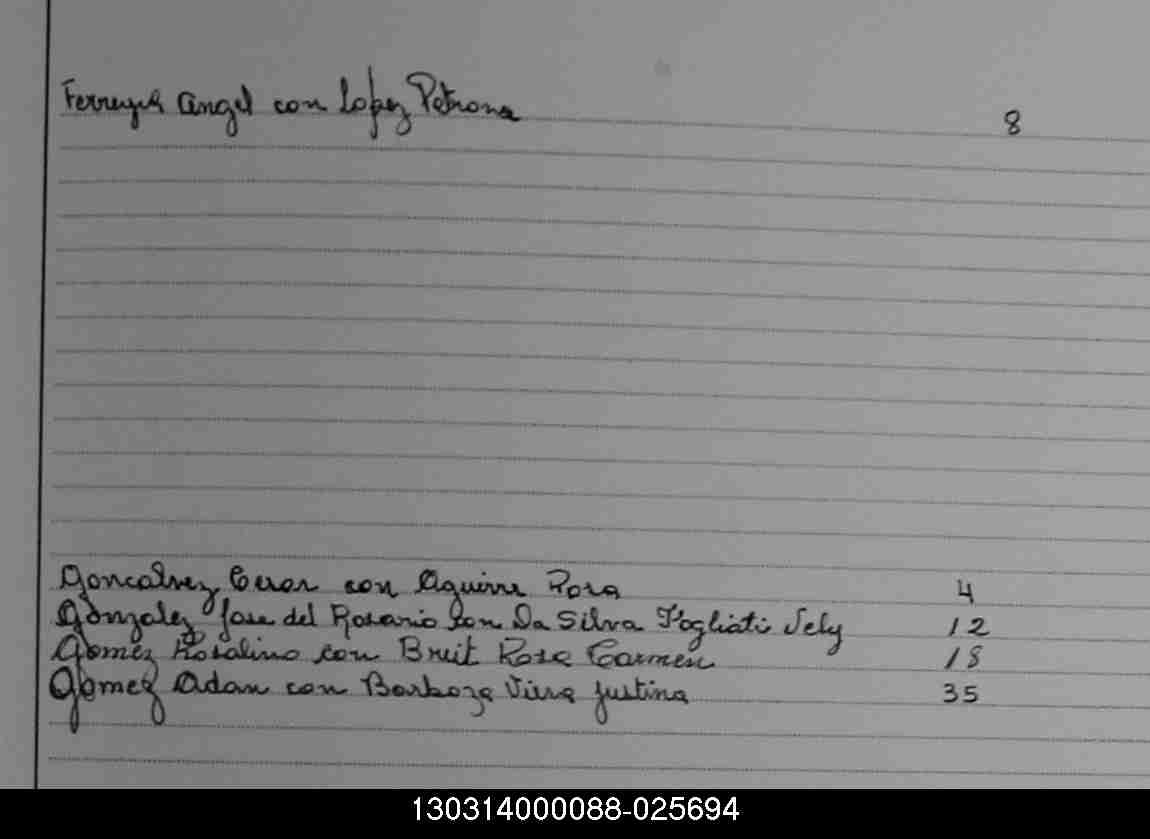 Ferreyra Angel con Lopez Petrona 8
Goncalvez Cesar con Aguirre Rosa 4
Gonzalez Jose del Rosario con Da Silva Fogliati Nely 12
Gomez Rosalino con Breit Rosa Carmen 18
Gomez Adan con Barboza Viera Justina 35
130314000088-025694